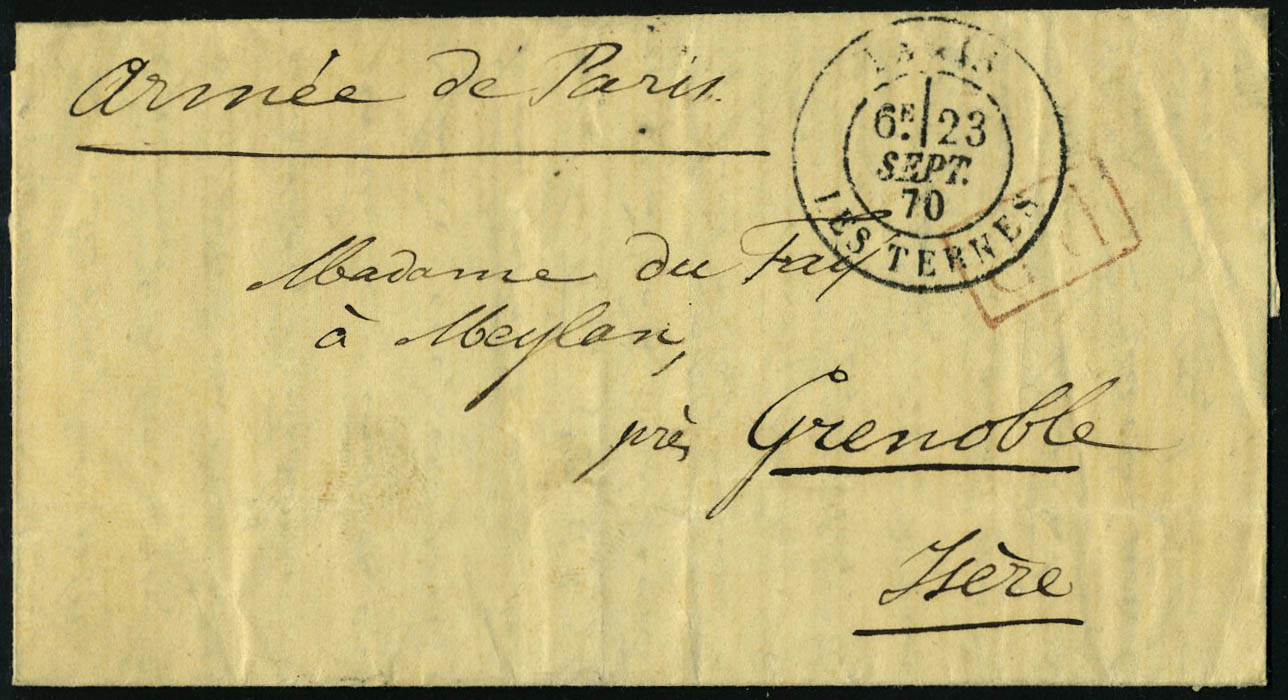 Armée de Paris.
PARIS
6E 23
SEPT.
70
LES TERNES
Madame du Fay
à Meylan,
près Grenoble
Isère